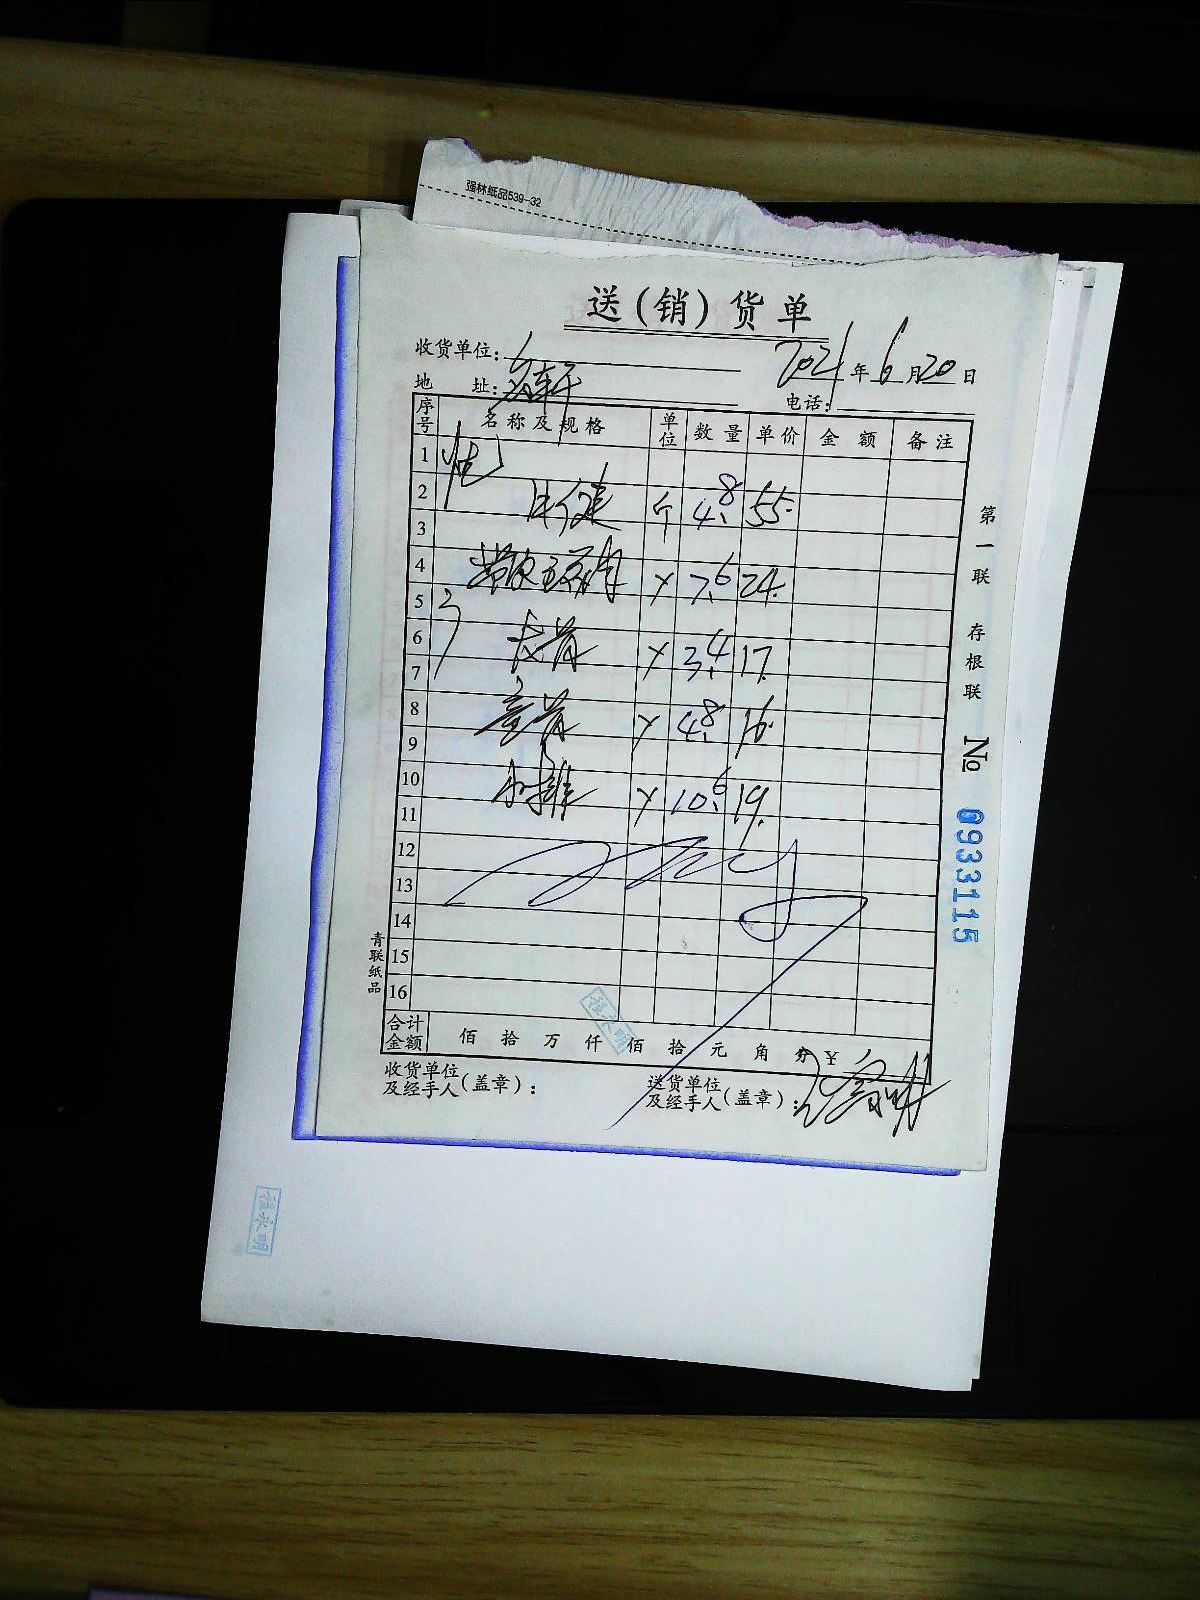 强林纸品539-32
送(销)货单
收货单位:
2021年6月20日
地 址:
电话:
序号 名称及规格 单位 数量 单价 金额 备注
1
2 斤 4.8 55.
3
4 带皮五花肉 〃 7.6 24.
5
6 龙骨 〃 3.4 17.
7
8 〃 4.8 16.
9
10 小排 〃 10.6 19.
11
12
13
14
15
16
合计金额 佰 拾 万 仟 佰 拾 元 角 分 ¥
收货单位及经手人(盖章):
送货单位及经手人(盖章):
第一联 存根联 No 0933115
青联纸品